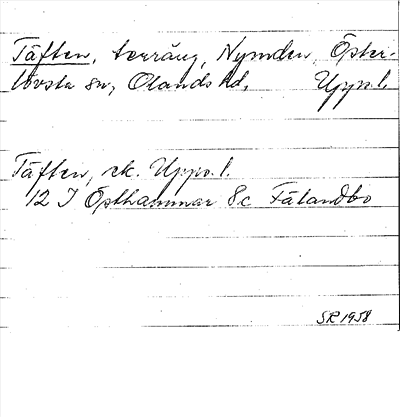 Täften, terräng, Nymden, Öster-
lövsta sn, Olands hd, Upps. l.
Täften, ek. Upps. l.
12 I Östhammar 8c Fälandbo
SR 1958